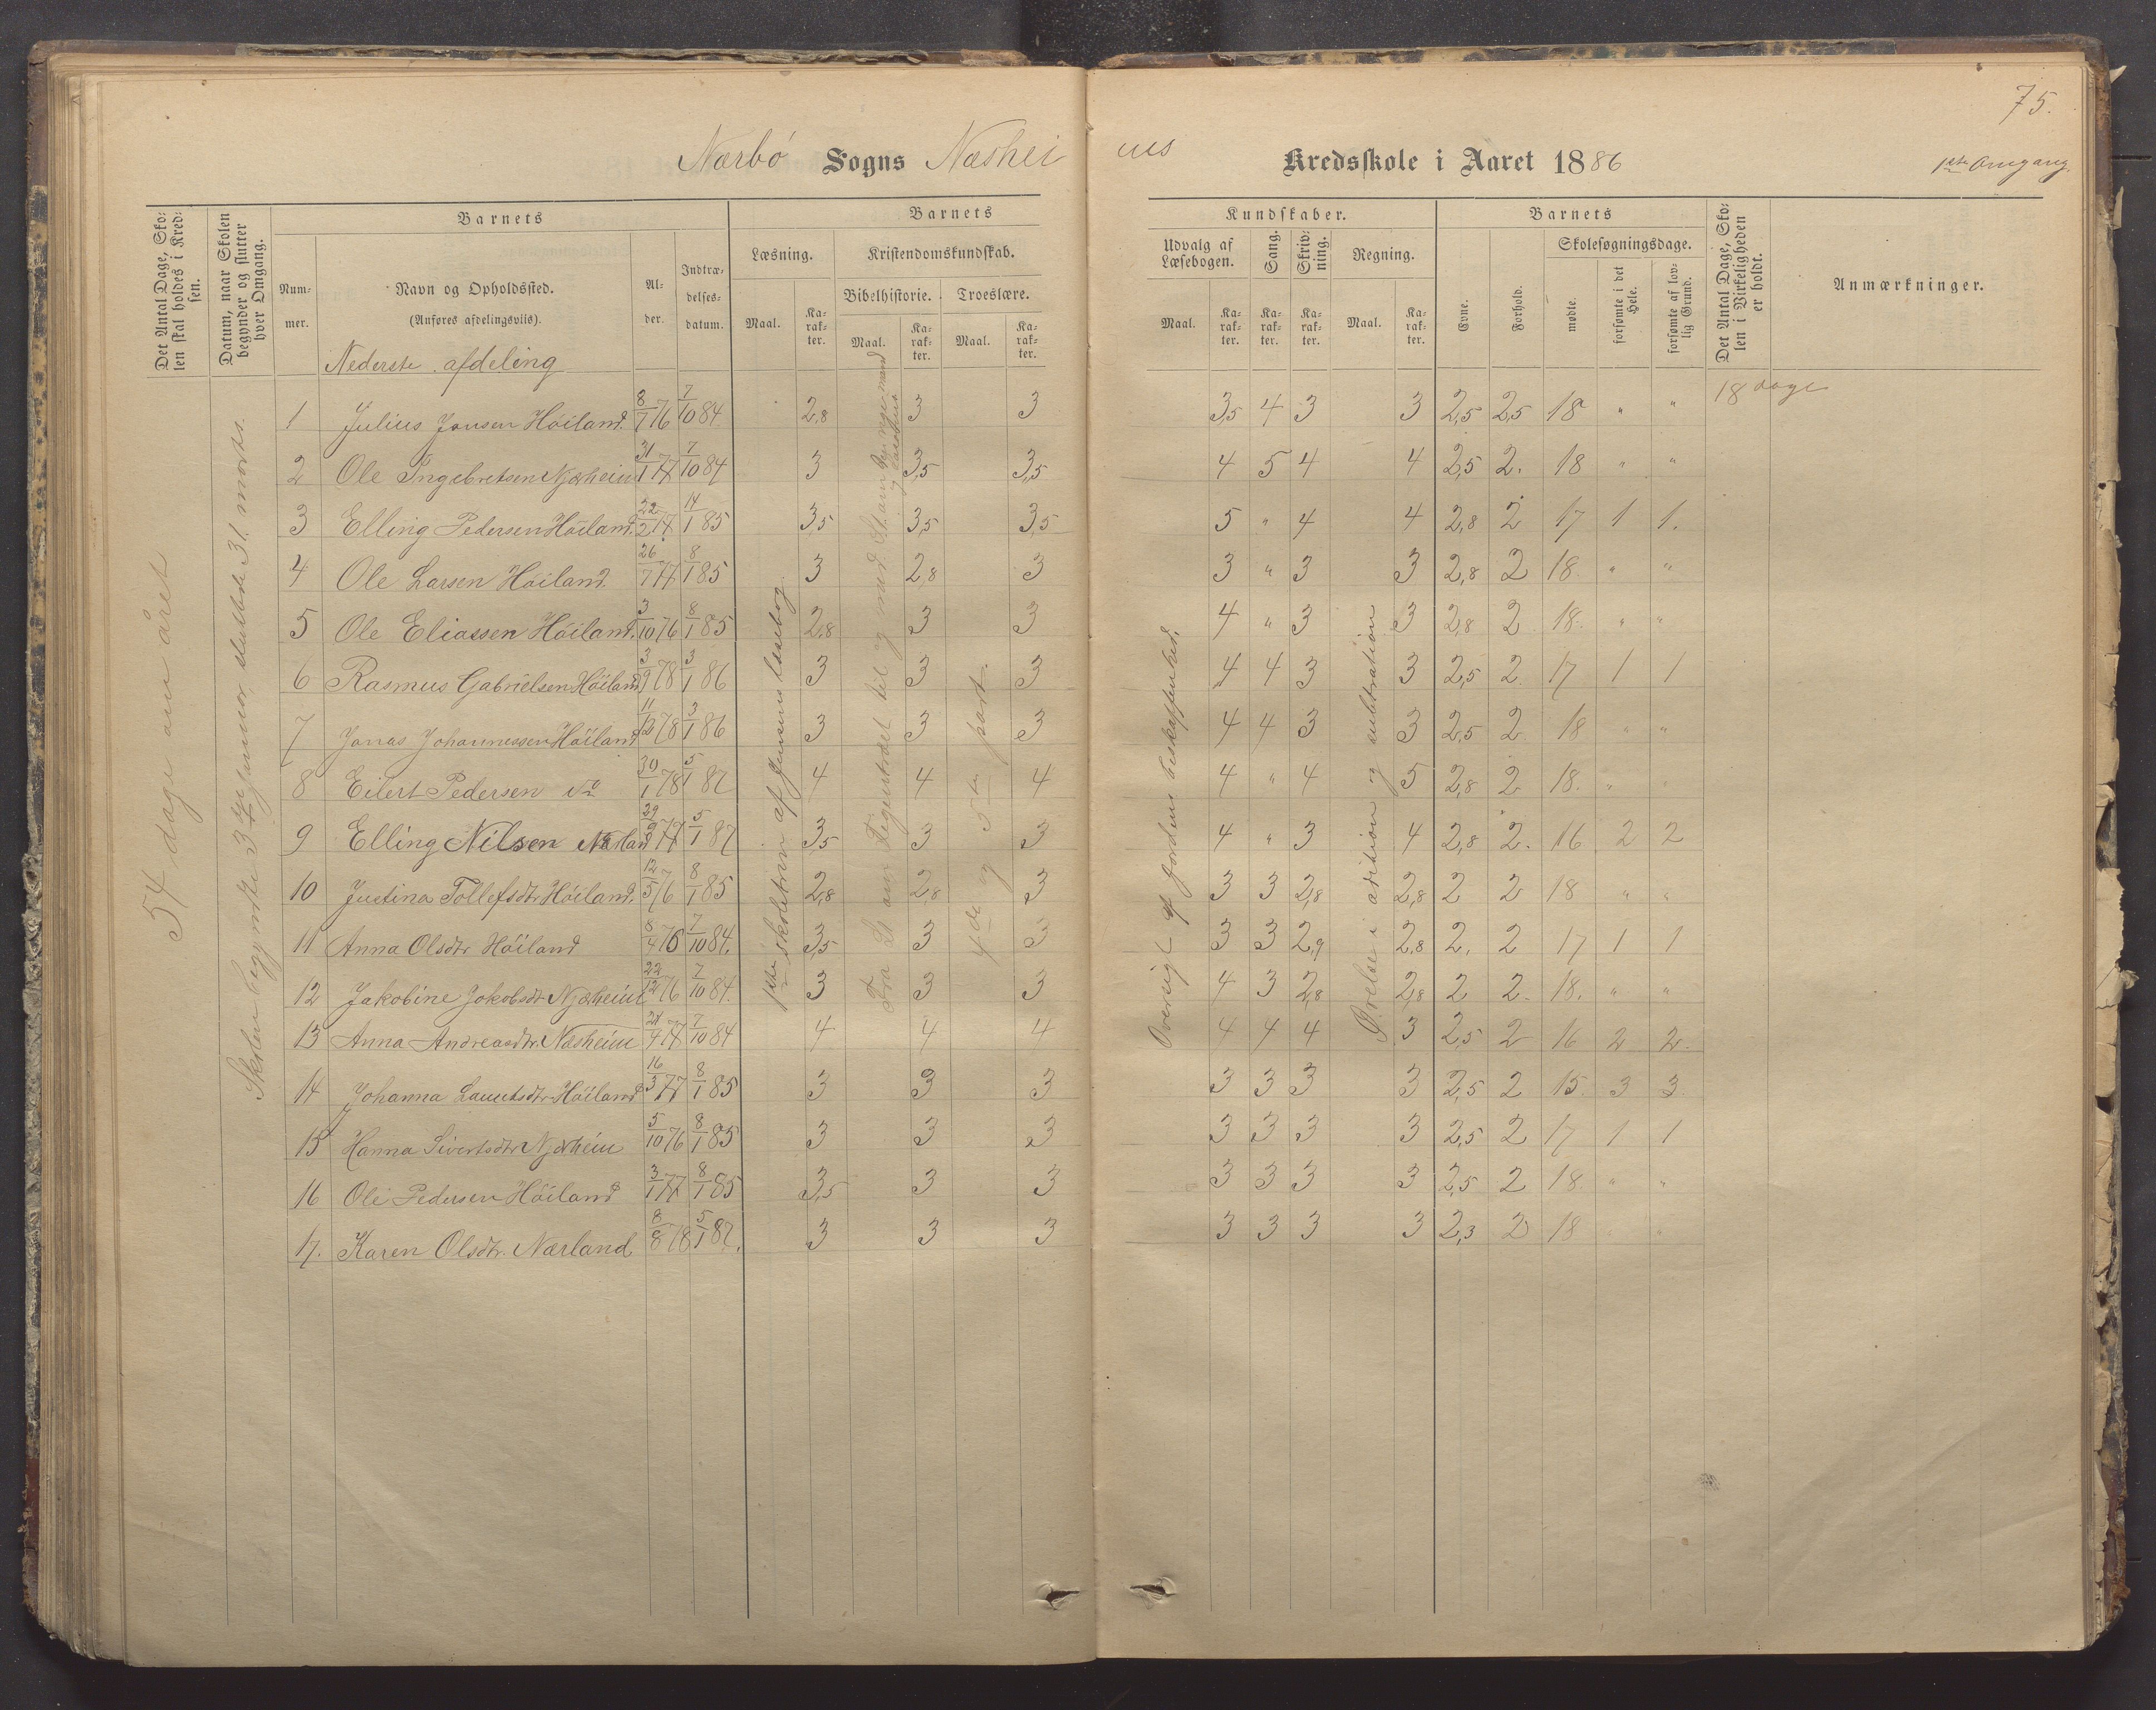 75.
Nærbö Sogns Næshei
ms Kredsskole i Aaret 1886
1ste Omgang.
Det Antal Dage, Sko-
len skal holdes i Kred-
sen.
Datum, naar Skolen
begynder og slutter
hver Omgang.
Barnets
Num-
mer.
Navn og Opholdssted.
(Anføres afdelingsviis).
Al-
der.
Indtræ-
delses-
datum.
Barnets
Læsning.
Kristendomskundskab.
Bibelhistorie.
Troeslære.
Maal.
Ka-
rak-
ter.
Maal.
Ka-
rak-
ter.
Maal.
Ka-
rak-
ter.
Kundskaber.
Udvalg af
Læsebogen.
Sang.
Skriv-
ning.
Regning.
Maal.
Ka-
rak-
ter.
Ka-
rak-
ter.
Ka-
rak-
ter.
Maal.
Ka-
rak-
ter.
Barnets
Evne.
Forhold.
Skolesøgningsdage.
mødte.
forsømte i det
Hele.
forsømte af lov-
lig Grund.
Det Antal Dage, Sko-
len i Virkeligheden
er holdt.
Anmærkninger.
Nederste afdeling
54 dage om året
Skolen begyndte 3die januar, sluttede 31. marts.
1ste skoletrin af Jensens læsebog
4de og 5te part.
Oversigt af jordens beskaffenhed.
Øvelse i addition og subtraktion
18 dage
1 Julius Jonsen Höiland. 8/7 76 7/10 84 2,8 3 3 3,5 4 3 3 2,5 2,5 18 " "
2 Ole Ingebretsen Njærheim 31/1 77 7/10 84 3 3,5 3,5 4 5 4 4 2,5 2. 18 " "
3 Elling Pedersen Höiland. 22/2 77 14/1 85 3,5 3,5 3,5 5 " 4 4 2,8 2 17 1 1.
4 Ole Larsen Höiland. 26/7 77 8/1 85 3 2,8 3 3 " 3 3 2,8 2 18. " "
5 Ole Eliassen Höiland. 3/10 76 8/1 85 2,8 3 3 4 " 3 3 2,8 2 18. " "
6 Rasmus Gabrielsen Höiland 3/9 78 3/1 86 3 3 3 4 4 3 3 2,5 2. 17 1 1
7 Jonas Johannessen Höiland 11/12 78 3/1 86 3 3 3 4 4 3 3 2,5 2 18 " "
8 Eilert Pedersen do 30/1 78 5/1 87 4 4 4 4 " 4 5 2,8 2 18. "
9 Elling Nilsen Nærland 29/9 77 5/1 87 3,5 3 3 4 " 3 4 2,8 2. 16 2 2
10 Justina Tollefsdtr Höiland. 12/5 76 8/1 85 2,8 2,8 3 3 3 2,8 2,8 2 2 18 " "
11 Anna Olsdtr Höiland 8/4 76 7/10 84. 3,5 3 3 3 3 2,9 2,8 2. 2 17 1 1
12 Jakobine Jokobsdtr Njærheim 22/12 76 7/10 84. 3 3 3 4 3 2,8 2,8 2 2. 18. " "
13 Anna Andreasdtr. Næsheim 24/4 77 7/10 84 4 4 4 4 4 4 3 2,5 2 16 2 2.
14 Johanna Lauritsdtr Höiland 16/3 77 8/1 85 3 3 3 3 3 3 3 2,5 2 15. 3 3.
15 Hanna Sivertsdtr Njærheim 5/10 76 8/1 85 3 3 3 3 3 3 3 2,5 2 17 1 1
16 Ole Pedersen Höiland 3/1 77 8/1 85 3,5 3 3 3 3 3 3 2,5 2 18. " "
17. Karen Olsdtr. Nærland 8/8 78 5/1 87. 3 3 3 3 3 3 3 2,3 2 18 " "